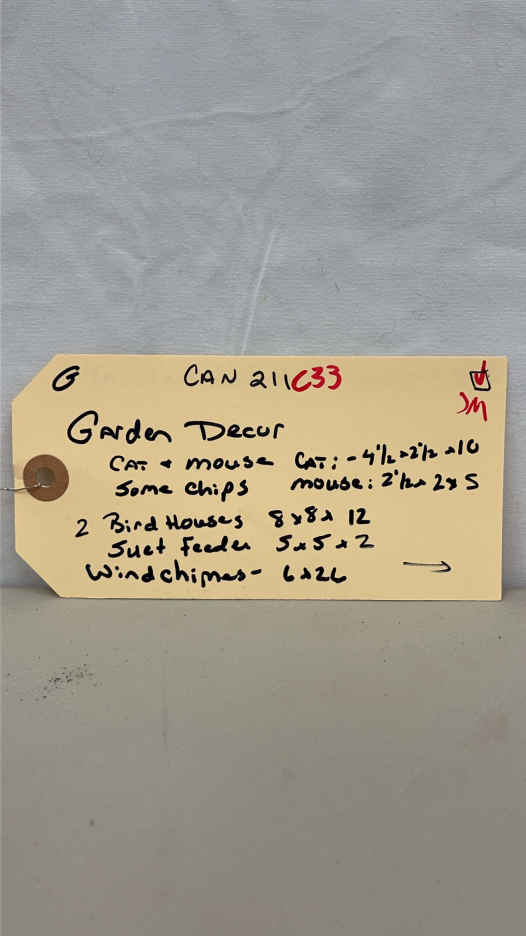 G CAN 211C33
JM
Garden Decor
CAT + mouse CAT: - 4 1/2 x 2 1/2 x 10
Some chips mouse: 2 1/2 x 2 x 5
2 Bird Houses 8 x 8 x 12
Suet Feeder 5 x 5 x 2
Windchimes - 6 x 26 →